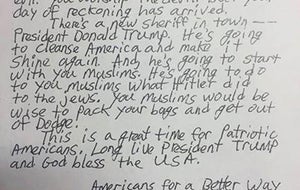 evil. You worship the devil. But your
day of reckoning has arrived.
There's a new sheriff in town ——
President Donald Trump. He's going
to cleanse America and make it
shine again. And, he's going to start
with you Muslims. He's going to do
to you Muslims what Hitler did
to the Jews. You Muslims would be
wise to pack your bags and get out
of Dodge.
This is a great time for Patriotic
Americans. Long Live President Trump
and God bless the USA.
Americans for a Better Way